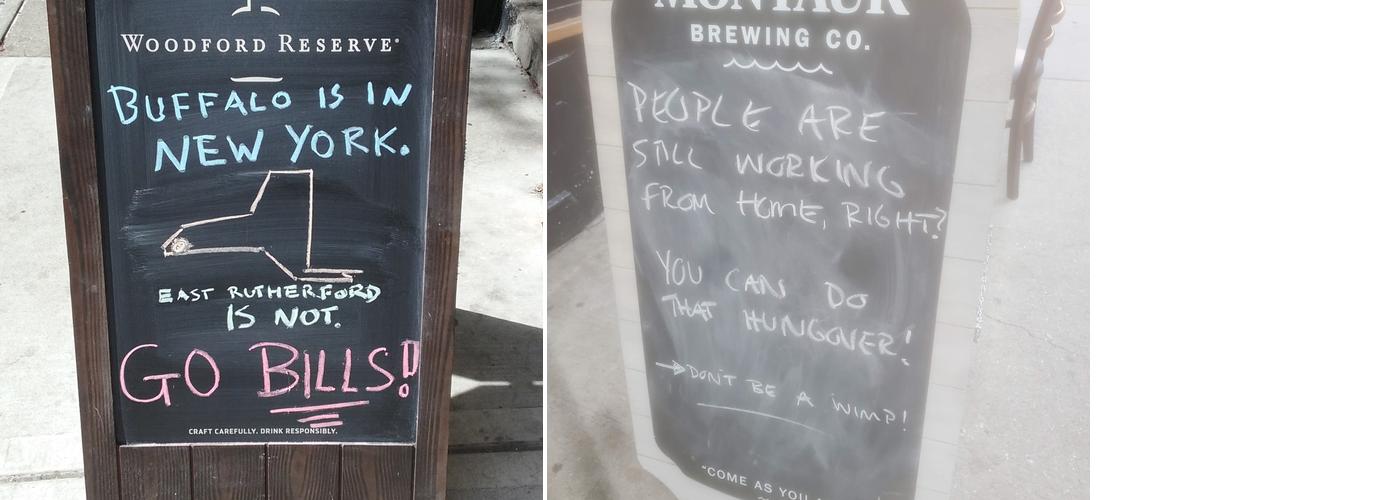 WOODFORD RESERVE®
BUFFALO IS IN
NEW YORK.
EAST RUTHERFORD
IS NOT.
GO BILLS!
CRAFT CAREFULLY. DRINK RESPONSIBLY.
MONTAUK
BREWING CO.
PEOPLE ARE
STILL WORKING
FROM HOME, RIGHT?
YOU CAN DO
THAT HUNGOVER!
→ DON'T BE A WIMP!
"COME AS YOU